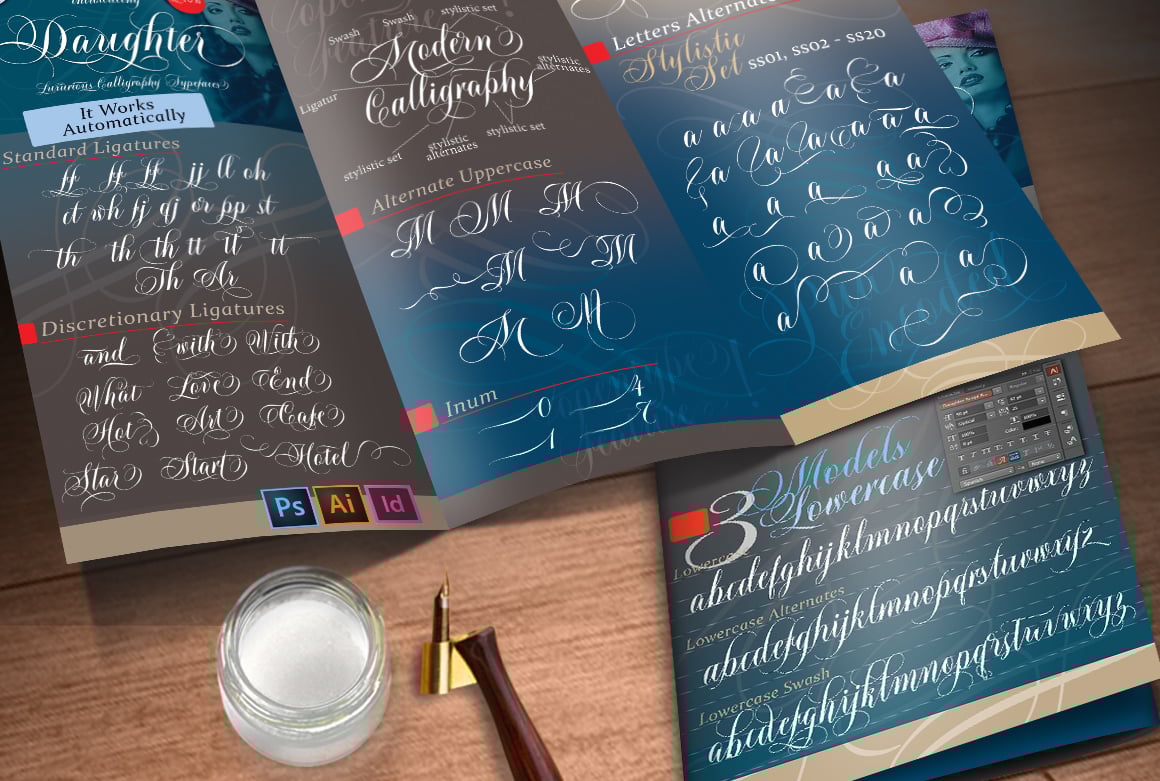 Handwriting
Daughter
Luxurious Calligraphy Typefaces
It Works
Automatically
Standard Ligatures
ff ff ff jj ll oh
ct wh fj gj or pp st
th th th tt tt tt
Th Ar
Discretionary Ligatures
and with With
What Love End
Hot Art Cafe
Star Start Hotel
Ps Ai Id
Swash Swash stylistic set
Modern
Calligraphy
stylistic
alternates
Ligatur
stylistic set
stylistic
alternates
stylistic set
Alternate Uppercase
M M M
M M
M M
Inum
0 4
1 7
Opentype
feature
Letters Alternate
Stylistic
Set SS01, SS02 - SS20
a a a a a a
a a a a a a
a a a a a
a a a a
a a a
Pua
Encoded
3 Models
Lowercase
Lowercase
abcdefghijklmnopqrstuvwxyz
Lowercase Alternates
abcdefghijklmnopqrstuvwxyz
Lowercase Swash
abcdefghijklmnopqrstuvwxyz